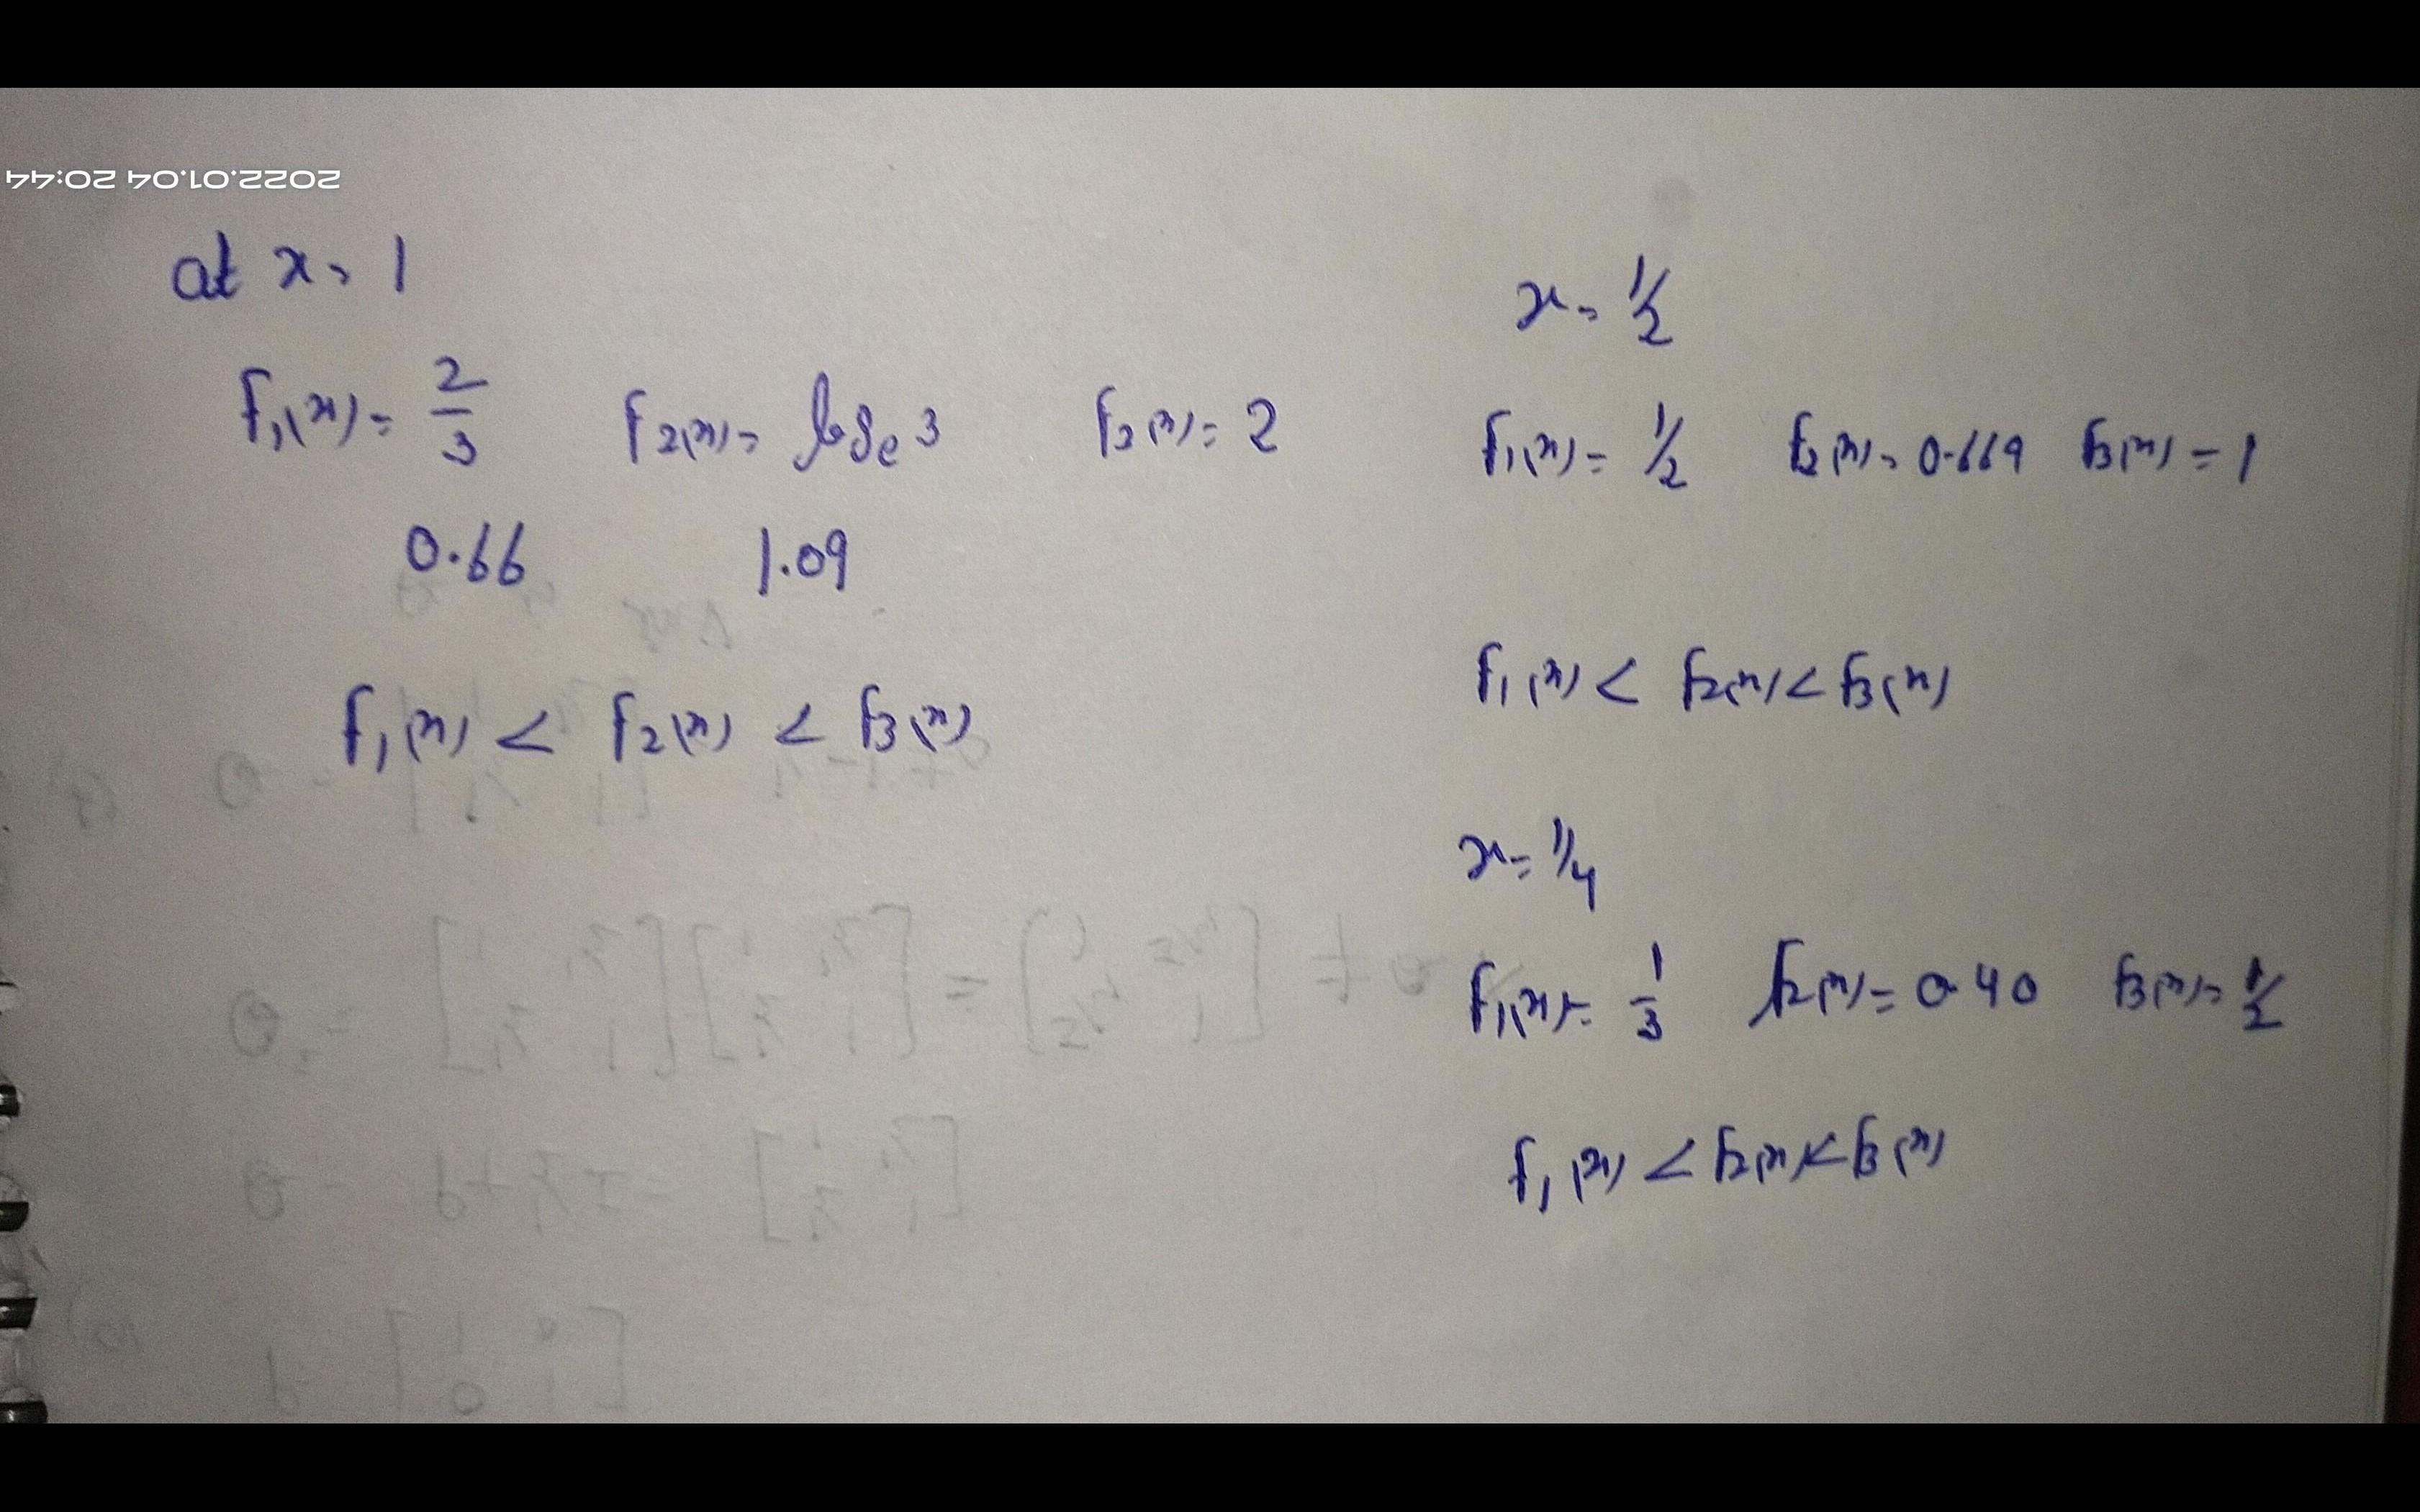 2022.01.04 20:44
at x = 1
f₁(x) = 2/3 f₂(x) = logₑ 3 f₃(x) = 2
0.66 1.09
f₁(x) < f₂(x) < f₃(x)
x = 1/2
f₁(x) = 1/2 f₂(x) = 0.669 f₃(x) = 1
f₁(x) < f₂(x) < f₃(x)
x = 1/4
f₁(x) = 1/3 f₂(x) = 0.40 f₃(x) = 1/2
f₁(x) < f₂(x) < f₃(x)